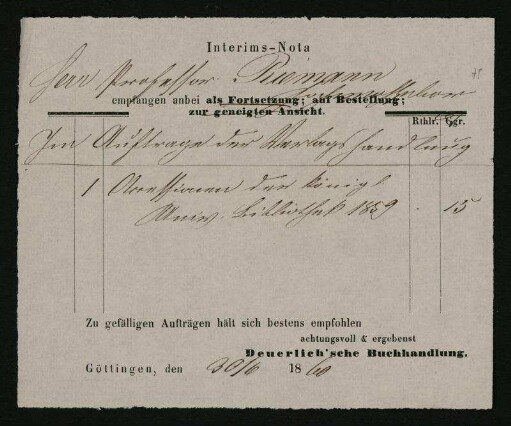 Interims-Nota
Herr Professor Riemann
empfangen anbei als Fortsetzung; auf Bestellung;
zur geneigten Ansicht.
Rthlr. Ggr.
Im Auftrage der Verlagshandlung
1 Accessionen der königl.
Univ. Bibliothek 1859 . 15
Zu gefälligen Aufträgen hält sich bestens empfohlen
achtungsvoll & ergebenst
Deuerlich'sche Buchhandlung.
Göttingen, den 30/6 1860